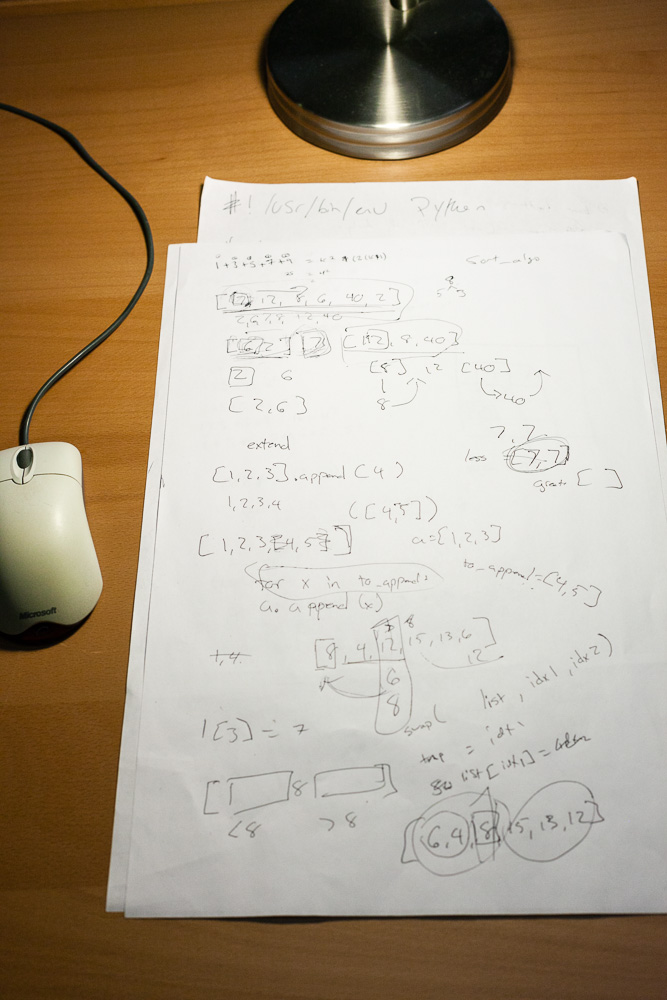 #! /usr/bin/env Python
1+3+5+7+9
sort_algo
12, 8, 6, 40, 2]
[12], 8, 40]
2 6
[8] 12 [40]
8 40
[2,6]
7,7
extend
less = [7,7]
[1,2,3].append(4)
greater [ ]
1,2,3,4
([4,5])
[1,2,3,[4,5]]
a=[1,2,3]
for x in to_append:
to_append=[4,5]
a.append(x)
8
[8, 4, 12, 15, 13, 6]
1,4
12
6
8
swap( list, idx1, idx2)
l[3] = 7
tmp = idx1
list[idx1] =
[ 8 ]
<8 >8
[6,4,8,15,13,12]
Microsoft